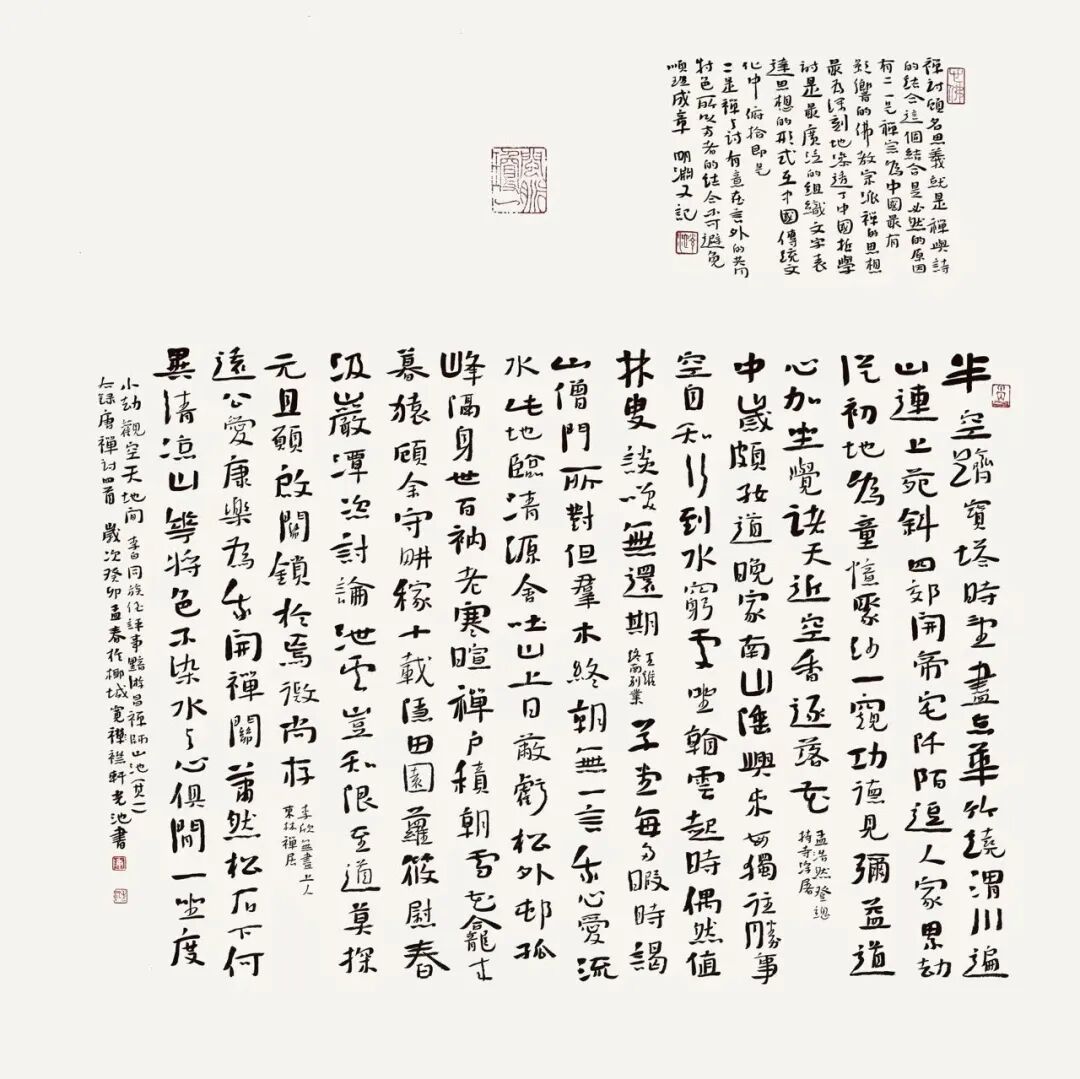 禪詩顧名思義就是禪與詩
的結合這個結合是必然的原因
有二一是禪宗為中國最有
影響的佛教宗派禪的思想
最為深刻地滲透了中國哲學
詩是最廣泛的組織文字表
達思想的形式在中國傳統文
化中俯拾即是
二是禪与詩有意在言外的共同
特色所以方者的結合不可避免
順理成章 明淵又記
半空躋寶塔時望盡京華竹繞渭川遍
山連上苑斜四郊開帝宅阡陌逗人家累劫
從初地為童憶聚沙一窺功德見彌益道
心加坐覺諸天近空香逐落花 孟浩然登總
持寺浮屠
中歲頗好道晚家南山陲興來每獨往勝事
空自知行到水窮處坐看雲起時偶然值
林叟談笑無還期 王維
終南別業 草堂每多暇時謁
山僧門所對但羣木終朝無一言我心愛流
水此地臨清源含吐山上日蔽虧松外邨孤
峰隔身世百衲老寒暄禪戶積朝雪花龕來
暮猿顧余守耕稼十載隱田園蘿筱慰舂
汲巖潭恣討論泄雲豈知限至道莫探
元且願啟關鎖於焉微尚存 李頎無盡上人
東林禪居
遠公愛康樂為我開禪關蕭然松石下何
異清涼山花將色不染水与心俱閒一坐度
小劫觀空天地間 李白同族侄評事黯遊昌禪師山池(其一)
右錄唐禪詩四首 歲次癸卯孟春於椰城寬禪軒老池書